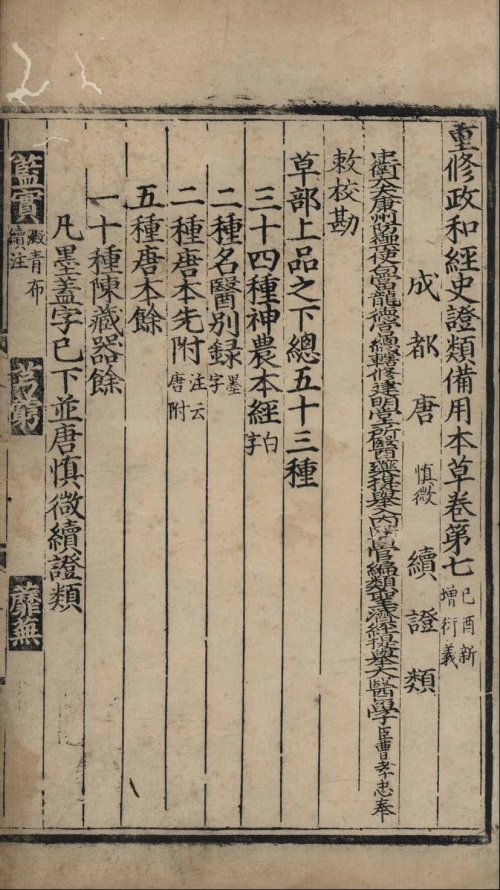 重修政和經史證類備用本草卷第七 己酉新增衍義
成都唐慎微續證類
中衛大夫康州防禦使句當龍德宮總轄修建明堂所醫藥提舉入內醫官編類聖濟經提舉太醫學臣曹孝忠奉
敕校勘
草部上品之下總五十三種
三十四種神農本經 白字
二種名醫別録 墨字
二種唐本先附 注云唐附
五種唐本餘
一十種陳藏器餘
凡墨蓋字已下並唐慎微續證類
藍實 殿青布續注 芎藭 蘼蕪